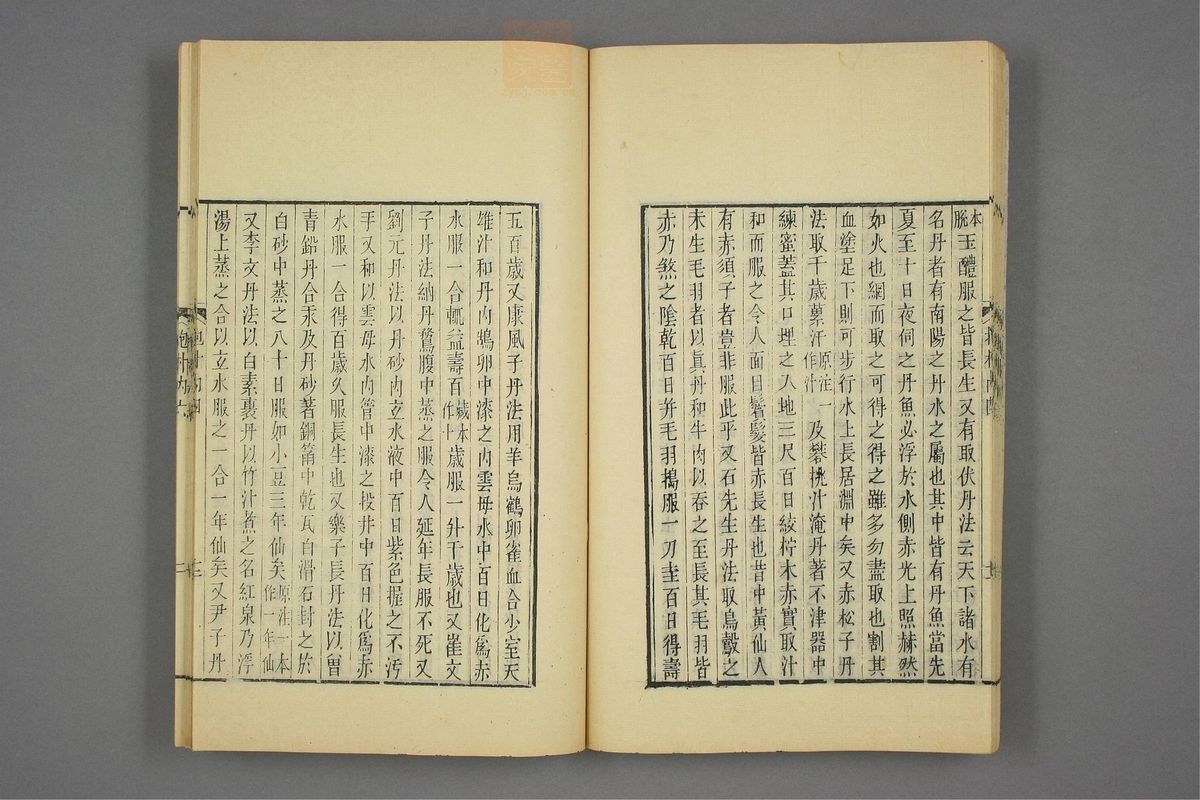 本脫玉醴服之皆長生又有取伏丹法云天下諸水有
名丹者有南陽之丹水之屬也其中皆有丹魚當先
夏至十日夜伺之丹魚必浮於水側赤光上照赫然
如火也網而取之可得之得之雖多勿盡取也割其
血塗足下則可步行水上長居淵中矣又赤松子丹
法取千歲蔂汗原注一作汁及礬桃汁淹丹著不津器中
練蜜蓋其口埋之入地三尺百日絞柠木赤實取汁
和而服之令人面目鬢髮皆赤長生也昔中黃仙人
有赤須子者豈非服此乎又石先生丹法取烏鷇之
未生毛羽者以眞丹和牛肉以吞之至長其毛羽皆
赤乃煞之陰乾百日并毛羽擣服一刀圭百日得壽
五百歲又康風子丹法用羊烏鶴卵雀血合少室天
雄汁和丹內鵠卵中漆之內雲母水中百日化爲赤
水服一合輒益壽百藏本作十歲服一升千歲也又崔文
子丹法納丹鶩腹中蒸之服令人延年長服不死又
劉元丹法以丹砂內立水液中百日紫色握之不汚
手又和以雲母水內管中漆之投井中百日化爲赤
水服一合得百歲久服長生也又樂子長丹法以曾
青鉛丹合汞及丹砂著銅筩中乾瓦白滑石封之於
白砂中蒸之八十日服如小豆三年仙矣原注一本作一年仙
又李文丹法以白素裹丹以竹汁煮之名紅泉乃浮
湯上蒸之合以立水服之一合一年仙矣又尹子丹